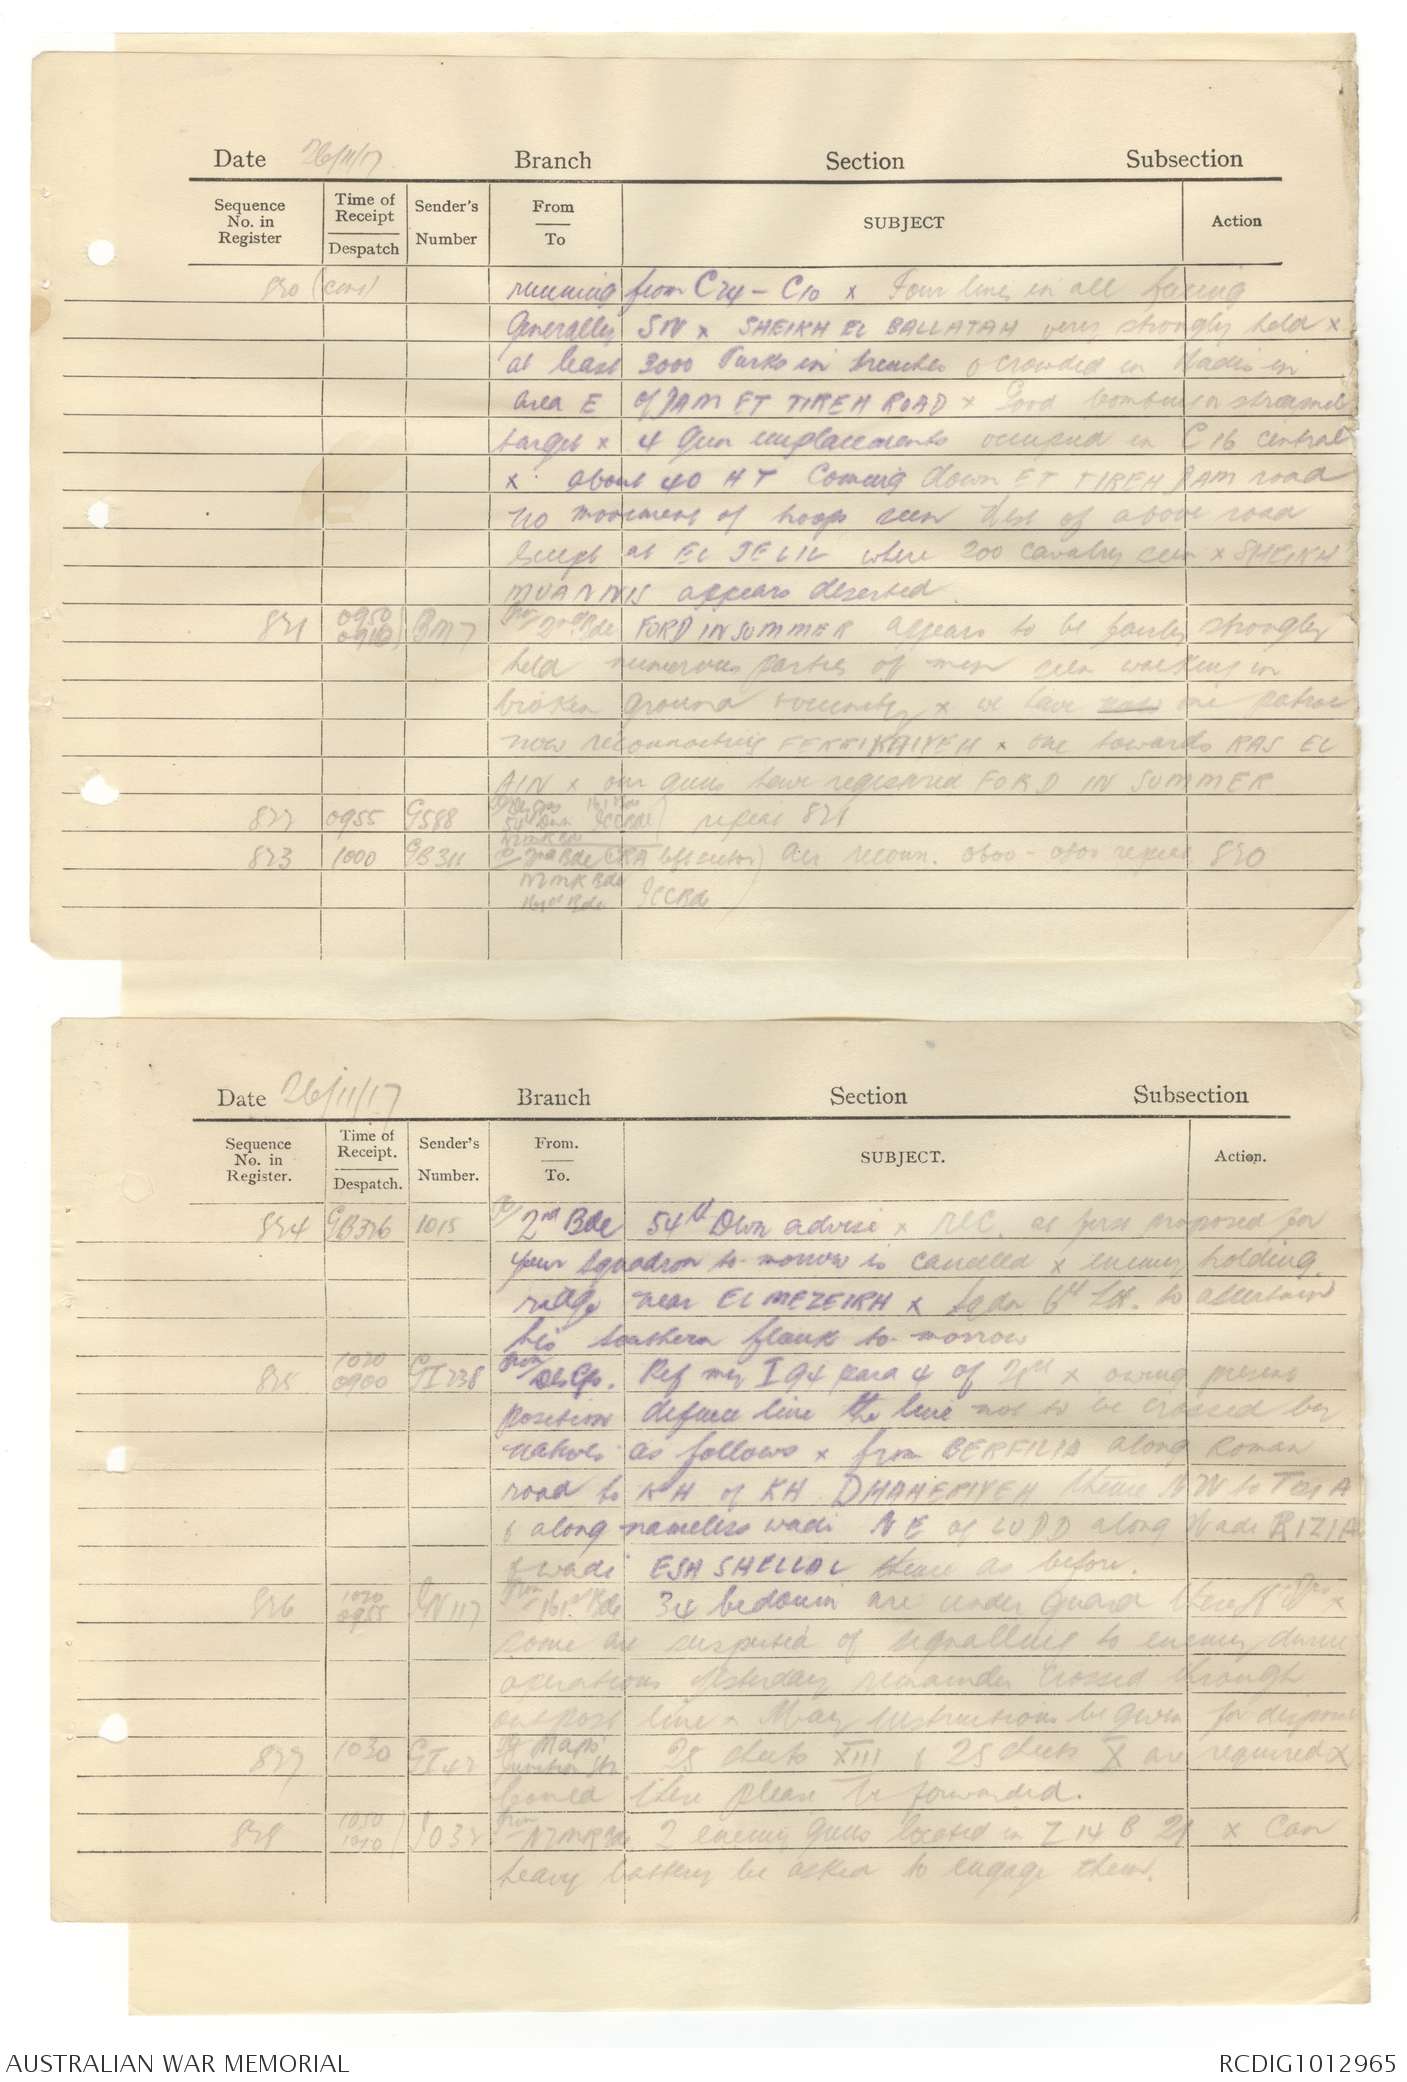 Date 26/11/17 Branch Section Subsection
Sequence No. in Register
Time of Receipt
Despatch
Sender's Number
From
To
SUBJECT
Action
820 (cont) running from C24 - C10 x Four lines in all facing
Generally SW x SHEIKH EL BALLATAH very strongly held x
at least 3000 Turks in trenches & crowded in Wadis in
area E of JAM ET TIREH ROAD x Good bombing
target x 4 Gun emplacements occupied in C 16 central
x about 40 HT coming down ET TIREH JAM road
no movement of troops seen West of above road
except at EL JELIL where 200 cavalry seen x SHEIKH
MUANNIS appears deserted
821 0950 0910 BM7 From 2nd Bde FORD IN SUMMER appears to be fairly strongly
held numerous parties of men seen walking in
broken ground vicinity x we have one patrol
now reconnoitring FERRIKHIYEH x one towards RAS EL
AIN x our guns have registered FORD IN SUMMER
822 0955 G588 54th Divn ICCBde repeat 821
823 1000 GB311 To 2nd Bde (CRA left sector) Air reconn. 0600 - 0800 repeat 820
NZMR Bde
161st Bde ICCBde
Date 26/11/17 Branch Section Subsection
Sequence No. in Register.
Time of Receipt.
Despatch.
Sender's Number.
From.
To.
SUBJECT.
Action.
824 GB326 1015 To 2nd Bde 54th Divn advise x rec. as first proposed for
your squadron to-morrow is cancelled x enemy holding
ridge near EL MEZEIRH x Sqdn 6th LH. to ascertain
his southern flank to-morrow
825 1020 0900 GI238 From DesCps. Ref my I94 para 4 of x owing present
position defence line the line not to be crossed by
natives as follows x from BERFILIA along Roman
road to KH of KH DHAHERIYEH thence NW to
& along nameless wadi NE of LUDD along Wadi
& wadi ESH SHELLAL thence as before.
826 1020 0955 GN117 From 161st Bde 34 bedouin are under guard x
some are suspected of signalling to enemy during
operations yesterday remainder crossed through
outpost line x May instructions be given for disposal
827 1030 Junction Stn. 25 sheets XIII & 25 sheets X are required x
please be forwarded.
828 1050 1010 From NZMRBde 2 enemy guns located in Z 14 B x Can
heavy battery be asked to engage them.
AUSTRALIAN WAR MEMORIAL
RCDIG1012965